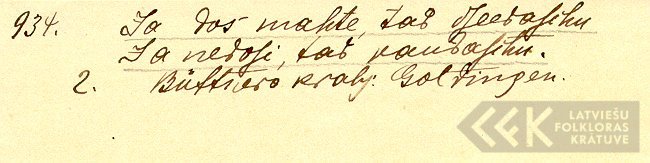 934. Ja dos mahte, tad dseedasihu
Ja nedos, tad raudasihu.
2. Büttnera krahj. Goldingen.
LATVIEŠU
FOLKLORAS
KRĀTUVE